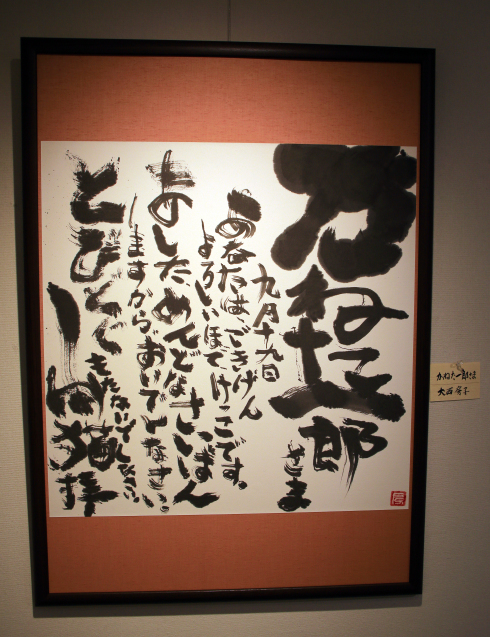 かねた一郎
さま
九月十九日
あなたは、ごきげん
よろしいほで けっこです。
あした、めんどなさいばん
しますから、おいでんなさい。
とびどぐ
もたないでくなさい。
山猫 拝
かねた一郎さま
大西